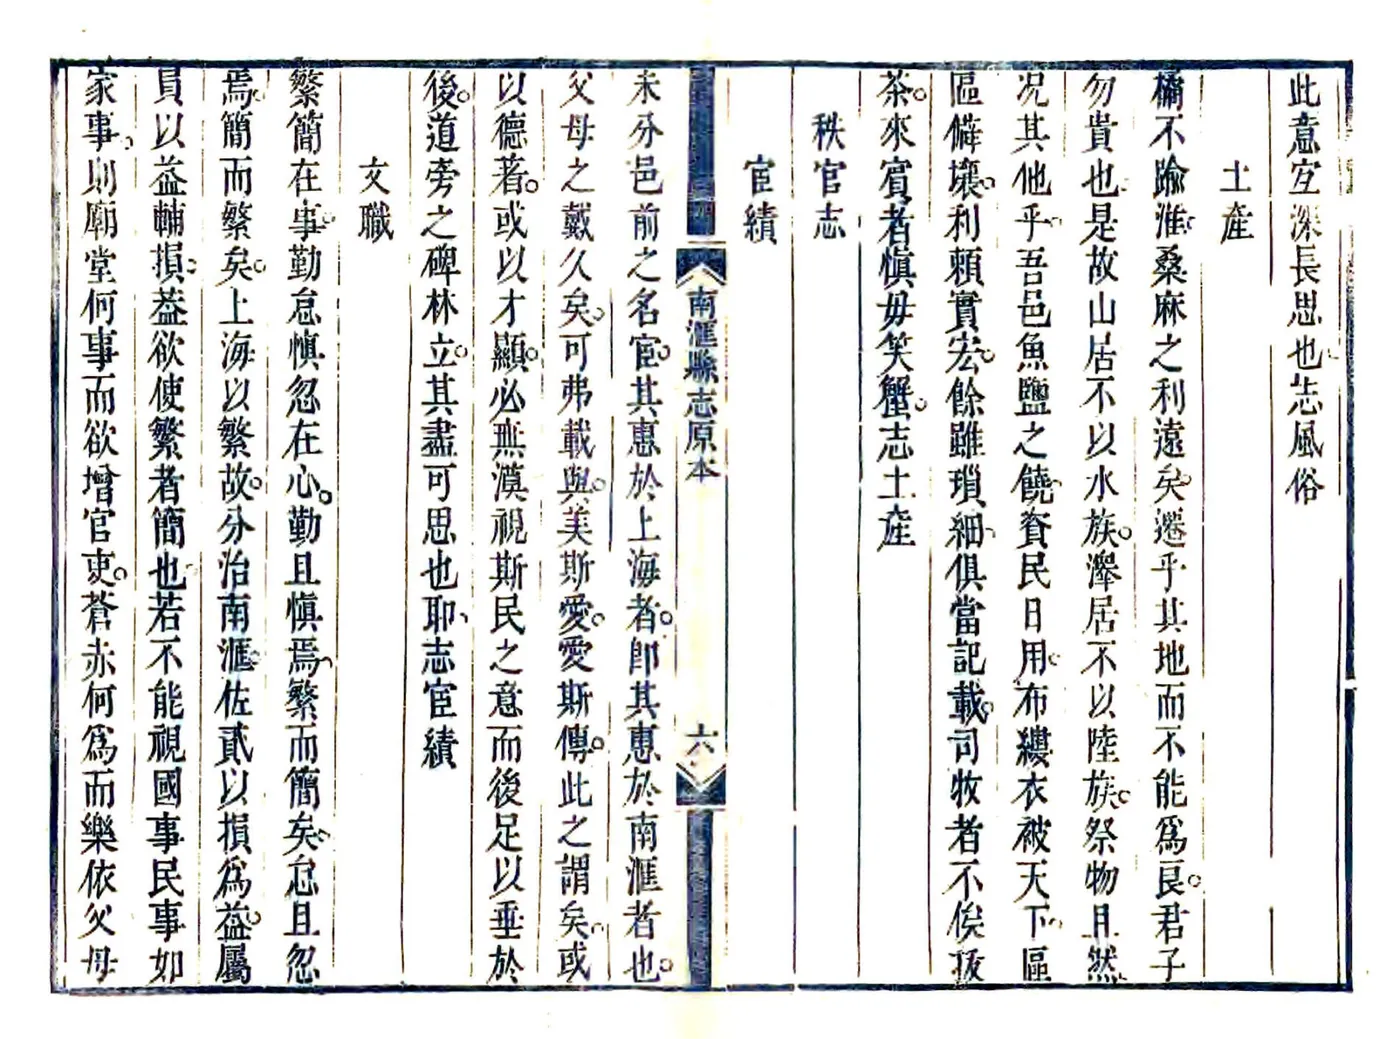 此意宜深長思也志風俗
土産
橘不踰淮桑麻之利遠矣遷乎其地而不能爲良君子
勿貴也是故山居不以水族澤居不以陸族祭物且然
况其他乎吾邑魚鹽之饒資民日用布縷衣被天下區
區僻壤利賴實宏餘雖瑣細俱當記載司牧者不俟拔
茶來賔者愼毋笑蟹志土産
秩官志
宦績
未分邑前之名宦其惠於上海者卽其惠於南滙者也
父母之戴久矣可弗載與美斯愛愛斯傳此之謂矣或
以德著或以才顯必無漠視斯民之意而後足以垂於
後道旁之碑林立其盡可思也耶志宦績
文職
繁簡在事勤怠愼忽在心勤且愼焉繁而簡矣怠且忽
焉簡而繁矣上海以繁故分治南滙佐貳以損爲益屬
員以益輔損益欲使繁者簡也若不能視國事民事如
家事則廟堂何事而欲增官吏蒼赤何爲而樂依父母
南滙縣志原本
六